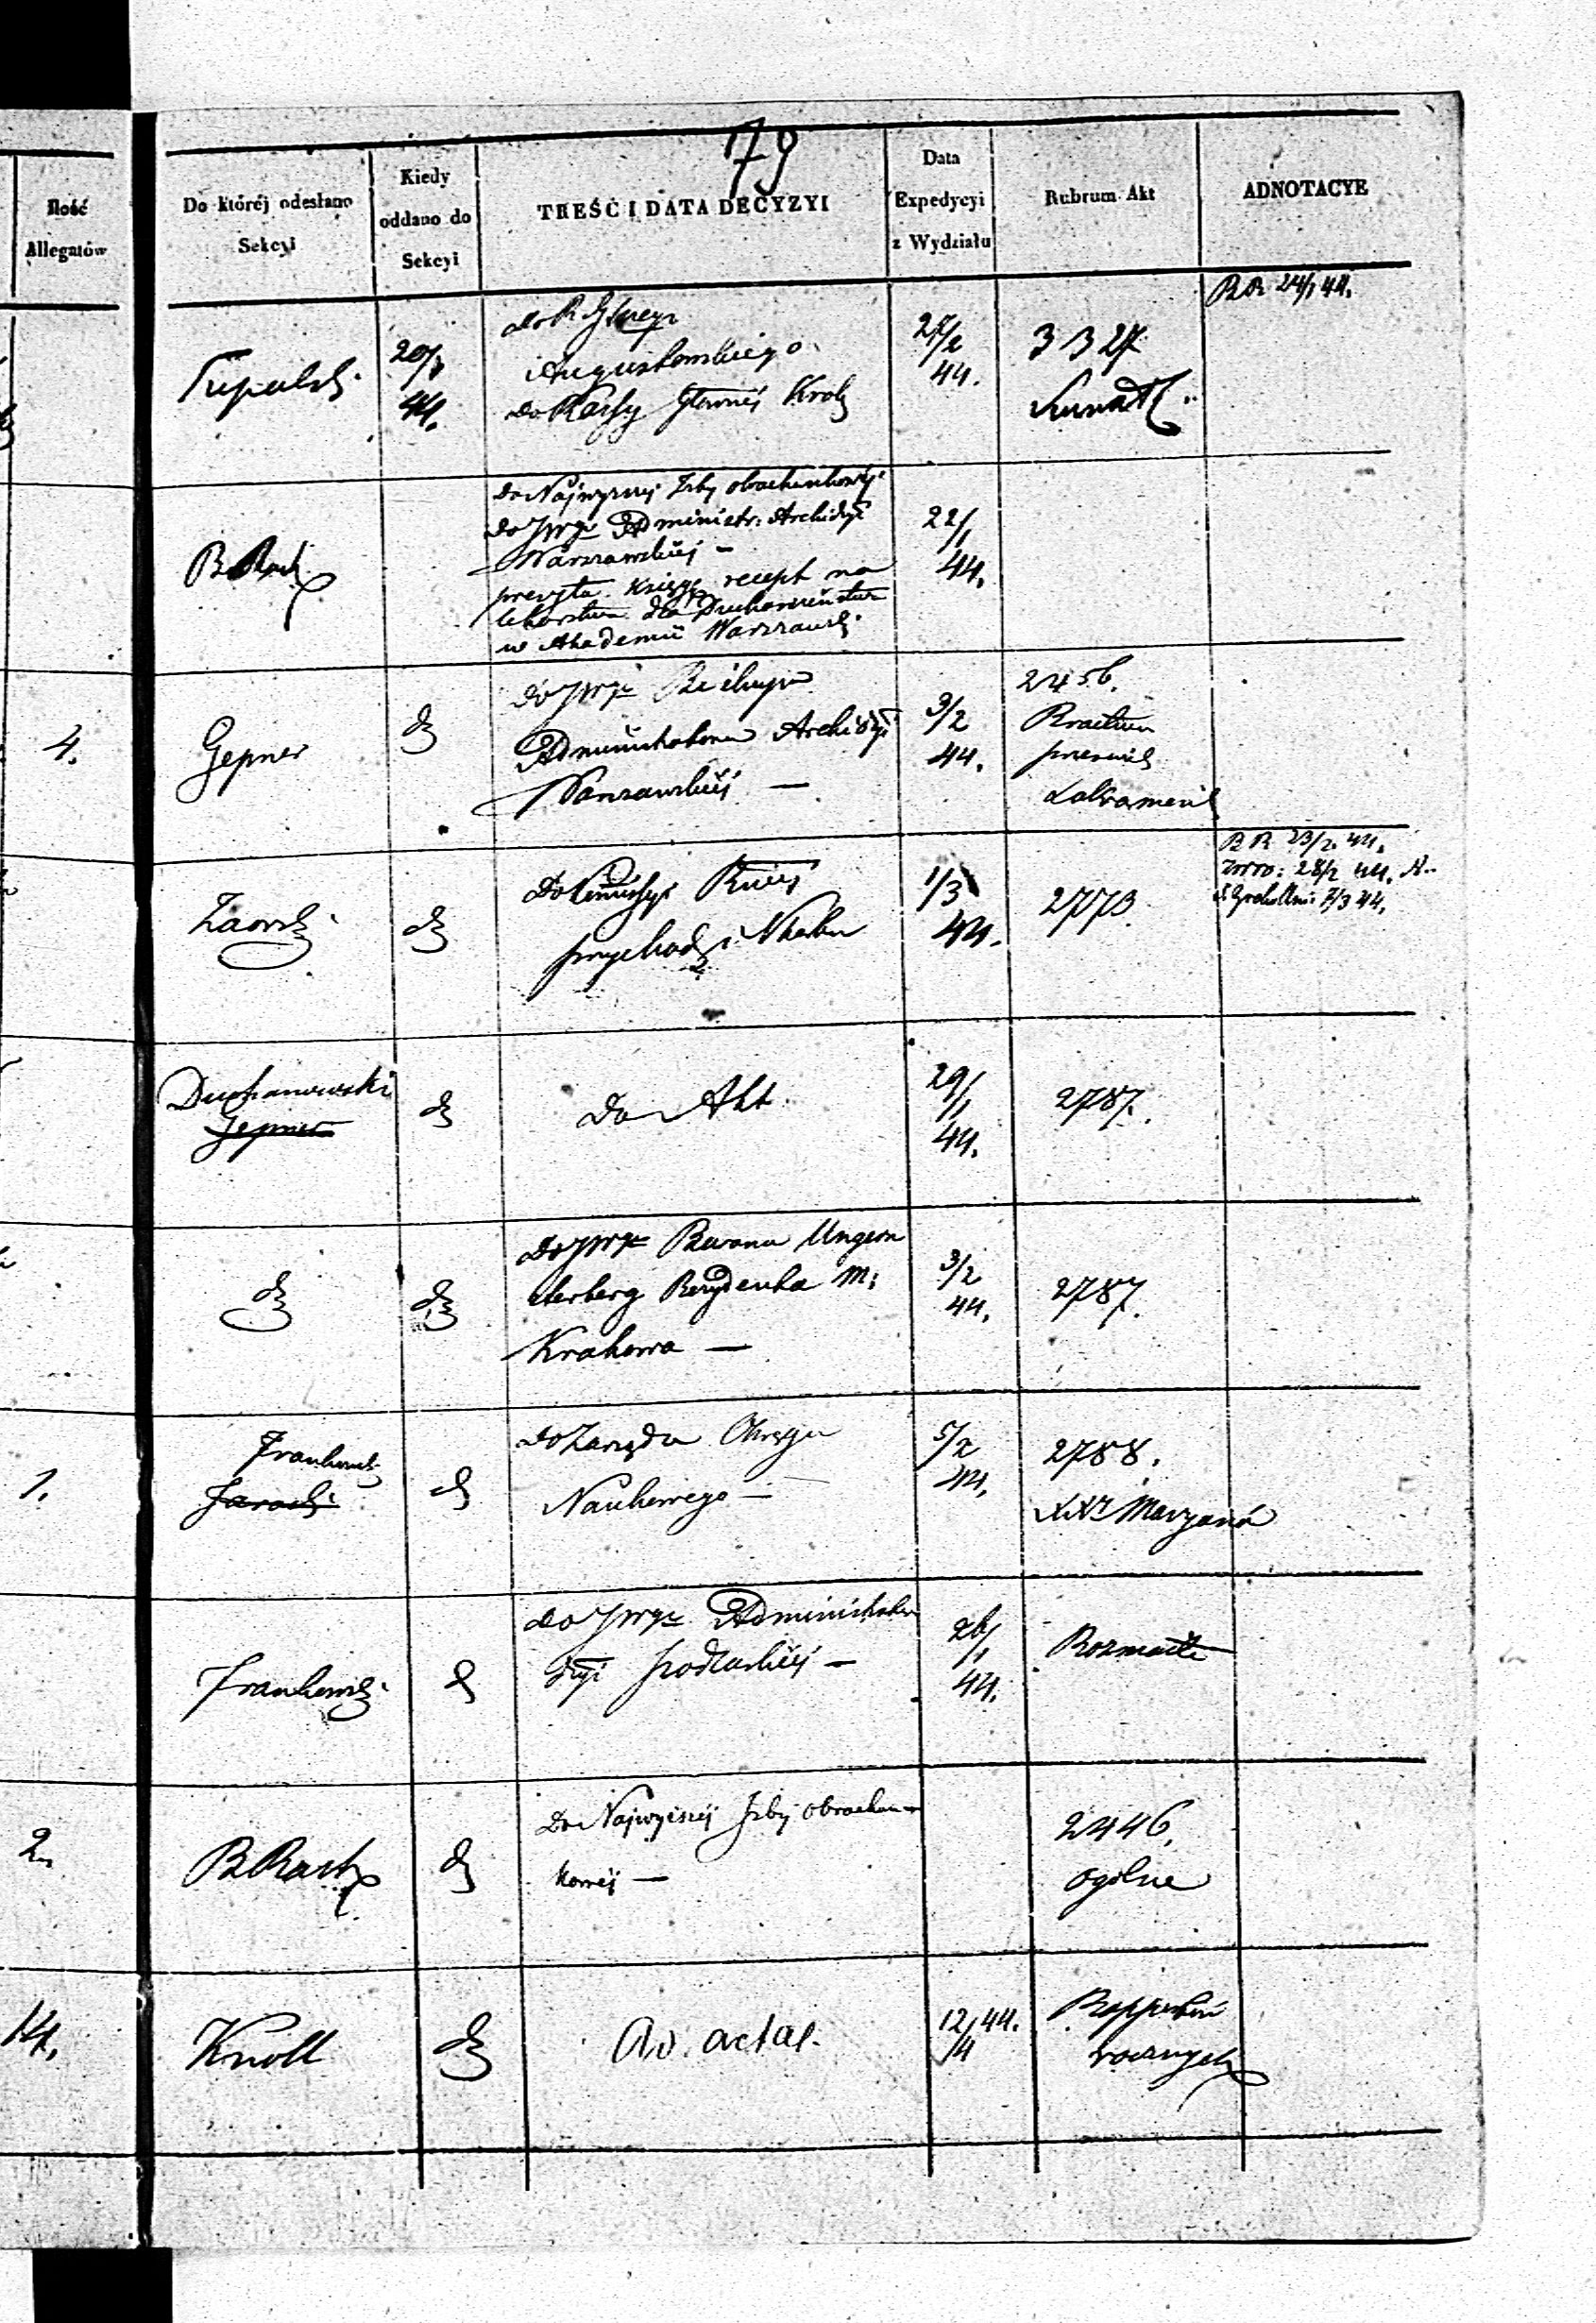 179
Ilość
Allegatów
Do któréj odesłano
Sekcyi
Kiedy
oddano do
Sekcyi
TREŚĆ I DATA DECYZYI
Data
Expedycyi
z Wydziału
Rubrum Akt
ADNOTACYE
20/1
44.
do R Gbneyo
Augustowskiego
do Kassy Głownéj Krolg
27/2
44.
3327
BR 24/1 44.
B Rach
do Najwyzszej Izby obrachunkowéj
do JWgo Administr: Archidyi
Warszawskiéj —
recept na
lekarstwa dla Duchowieństwa
w Akademii Warszawsk
22/1
44.
4.
Gepner
do JWgo Biskupa
Administratora Archidyi
Warszawskiéj —
3/2
44.
2456.
Bractwa
Sakrament
Zaorsk
przychod i Skarbu
1/3
44.
2773
BR 23/2 44.
28/2 44.
7/3 44.
Duchanowski
Gepner
do Akt
29/1
44.
2787.
do JWgo Barona Ungern
Sternberg Rezydenta M:
Krakowa —
3/2
44.
2787.
1.
Frankowsk
do Zarządu Okręgu
Naukowego —
5/2
44.
2788.
XX Maryanó
Frankowsk
do JWgo Administrator
Dyi Podlaskiéj —
26/1
44.
Rozmaite
2.
B Rach
Do Najwyższéj Izby obrachun
kowéj —
2446.
ogólne
14.
Knoll
Ad. acta.
12/4 44.
Rapportów
rocznych